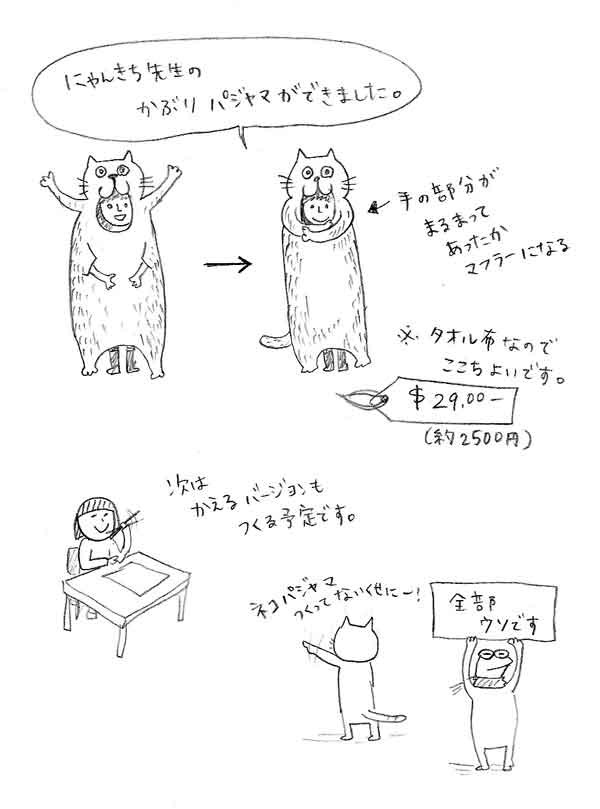 にゃんきち先生の
かぶりパジャマができました。
手の部分が
まるまって
あったか
マフラーになる
※タオル布なので
ここちよいです。
$29.00−
(約2500円)
次は
かえるバージョンも
つくる予定です。
ネコパジャマ
つくってないくせにー!
全部
ウソです